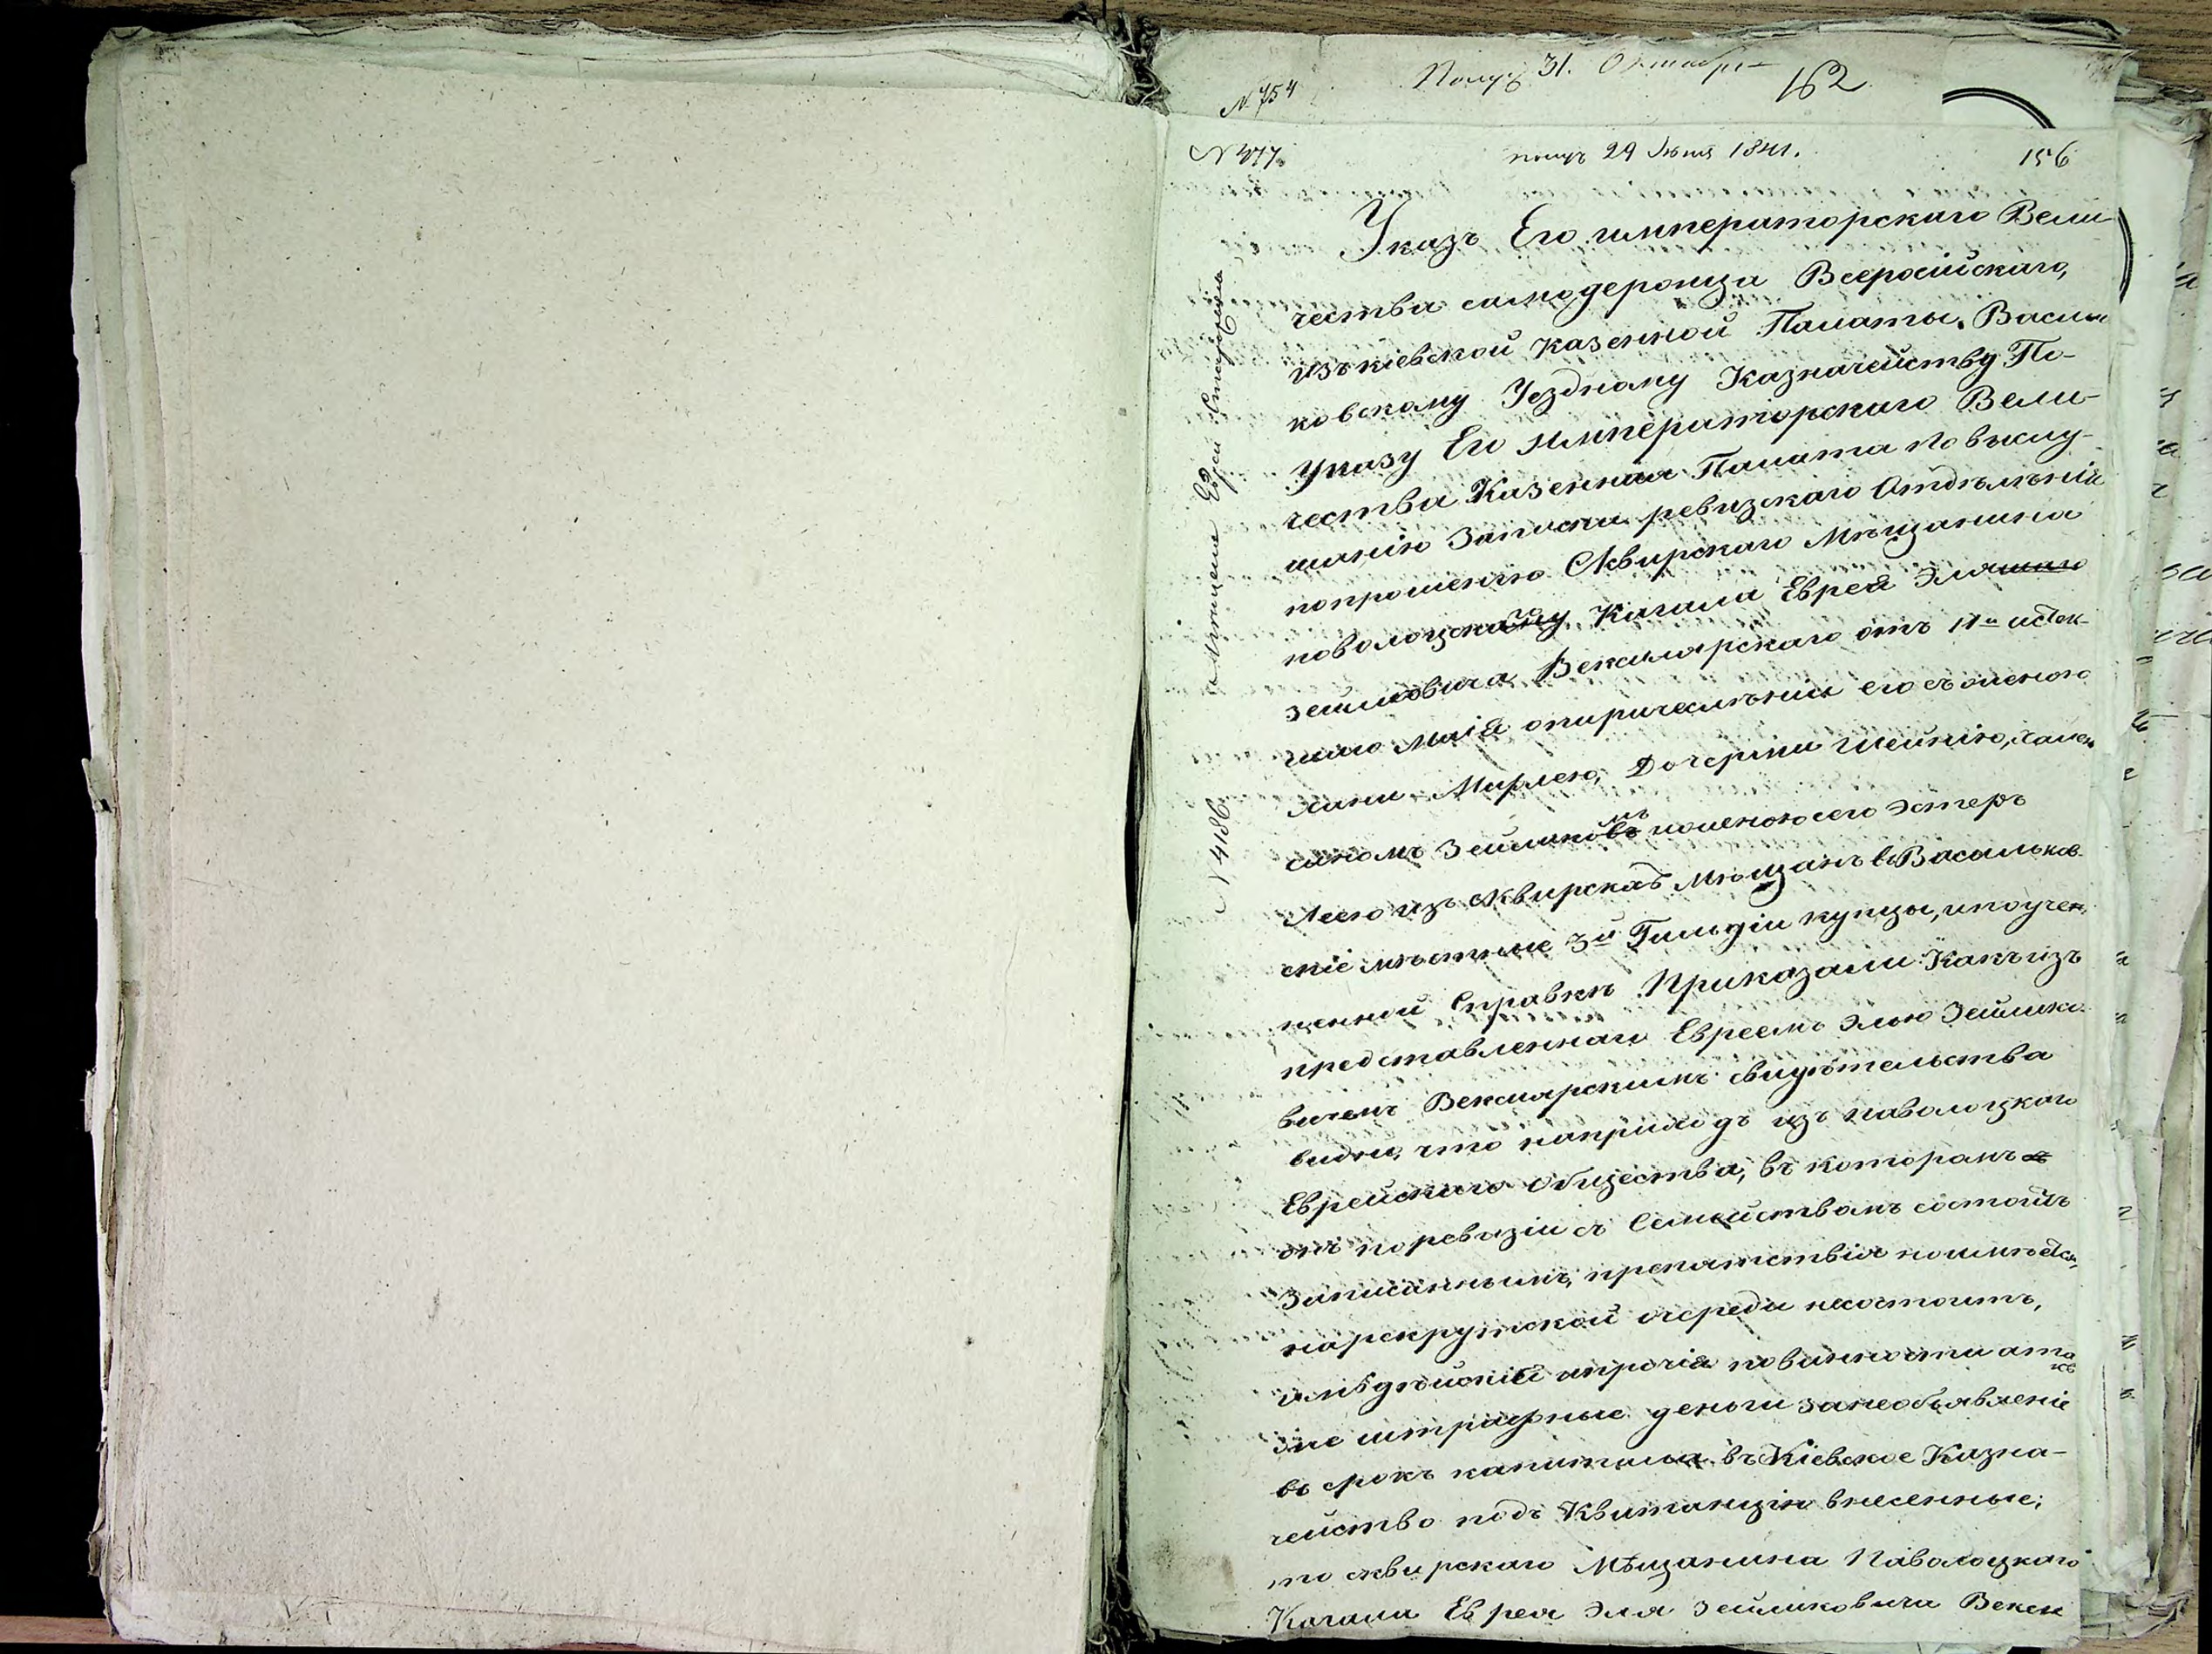 № 754 Получ 31. Октября 162
№ 377. получ 29 Июня 1841. 156
Указъ Его императорскаго Вели-
чества самодержца Всеросiйскаго,
изъ кiевской казенной Палаты, Василь
ковскому Уездному Казначейству По-
Указу Его императорскаго Вели-
чества Казенная Палата по выслу-
шанiю Записки ревизскаго Отдѣлѣнiя
попрошенiю Сквирскаго Мѣщанина
поволоцкаго Кагала Еврея Эля
зейликовича Векслярскаго отъ 17го истек-
шаго маiя опиричеслѣнiи его съ женою
Мирлею, Дочерми Шейнiю,
сыномъ Зейликомъ и женою его Эстеръ
Леею изъ сквирскихъ мѣщанъ въ Васильков-
скiе мѣстные 3й Гильдiи купцы, и по учен-
ненной Справкѣ Приказали: Какъ изъ
представленнаго Евреемъ Элью Зейлико-
вичемъ Векслярскимъ свидѣтельства
видно, что напрiиходъ изъ паволоцкаго
Еврейскаго общества, въ которомъ
онъ по ревизiи съ Семействомъ состоитъ
Записаннымъ, препятствiя неимѣется,
нарекрутской очереди несостоитъ,
и прочiя повинности а так
же штрафные деньги занеобъявленiе
въ срокъ капитала въ Кiевское Казна-
чейство подъ Квитанцiю внесенные,
то сквирскаго Мѣщанина Паволоцкаго
Кагала Еврея Эля Зейликовича Векск
№ 4186